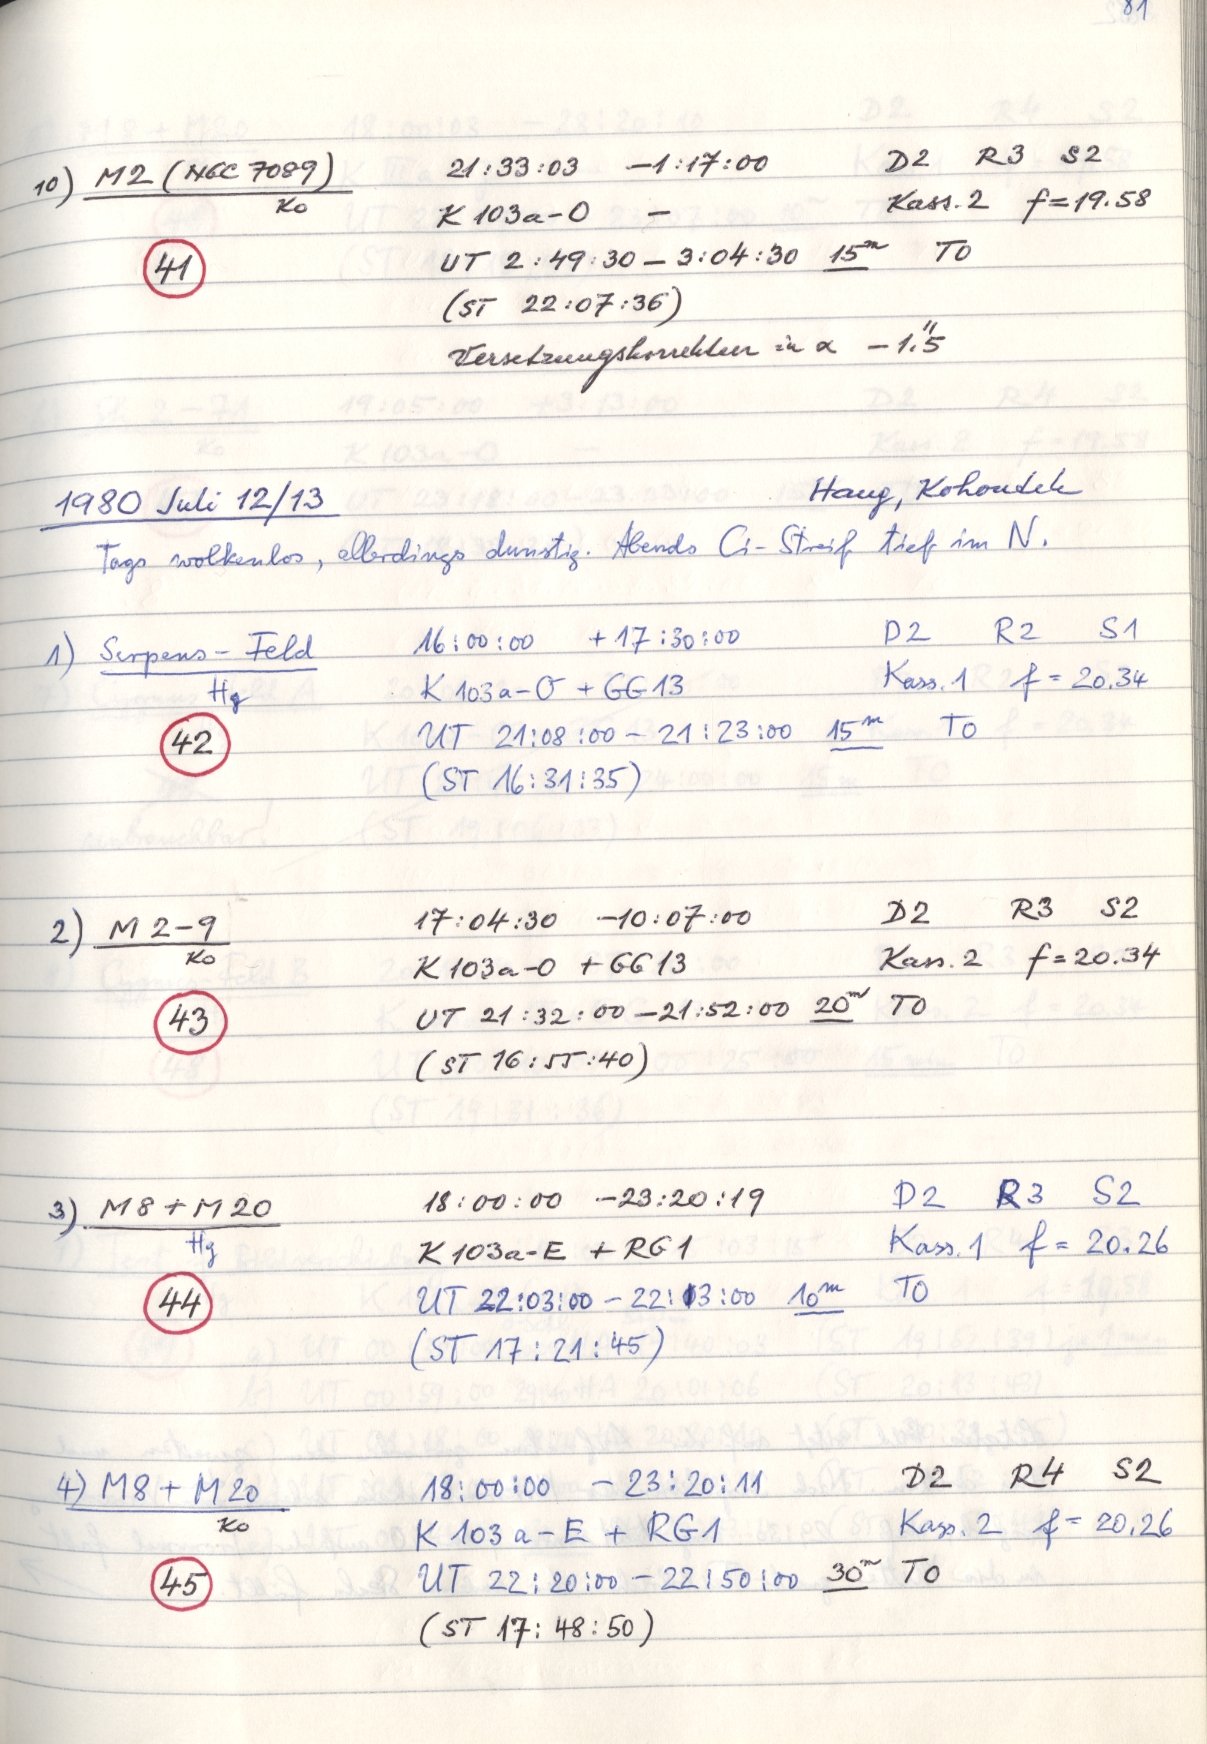 81
10) M2 (NGC 7089) 21:33:03 -1:17:00 D2 R3 S2
Ko K 103a-O — Kass. 2 f=19.58
41 UT 2:49:30 - 3:04:30 15m TO
(ST 22:07:36)
Versetzungskorrektur in α -1."5
1980 Juli 12/13 Haug, Kohoutek
Tags wolkenlos, allerdings dunstig. Abends Ci-Streif tief im N.
1) Serpens-Feld 16:00:00 +17:30:00 D2 R2 S1
Hg K 103a-O + GG13 Kass. 1 f = 20.34
42 UT 21:08:00 - 21:23:00 15m TO
(ST 16:31:35)
2) M 2-9 17:04:30 -10:07:00 D2 R3 S2
Ko K 103a-O + GG13 Kass. 2 f=20.34
43 UT 21:32:00 - 21:52:00 20m TO
(ST 16:55:40)
3) M8 + M20 18:00:00 -23:20:19 D2 R3 S2
Hg K 103a-E + RG1 Kass. 1 f = 20.26
44 UT 22:03:00 - 22:13:00 10m TO
(ST 17:21:45)
4) M8 + M20 18:00:00 -23:20:11 D2 R4 S2
Ko K 103a-E + RG1 Kass. 2 f = 20.26
45 UT 22:20:00 - 22:50:00 30m TO
(ST 17:48:50)